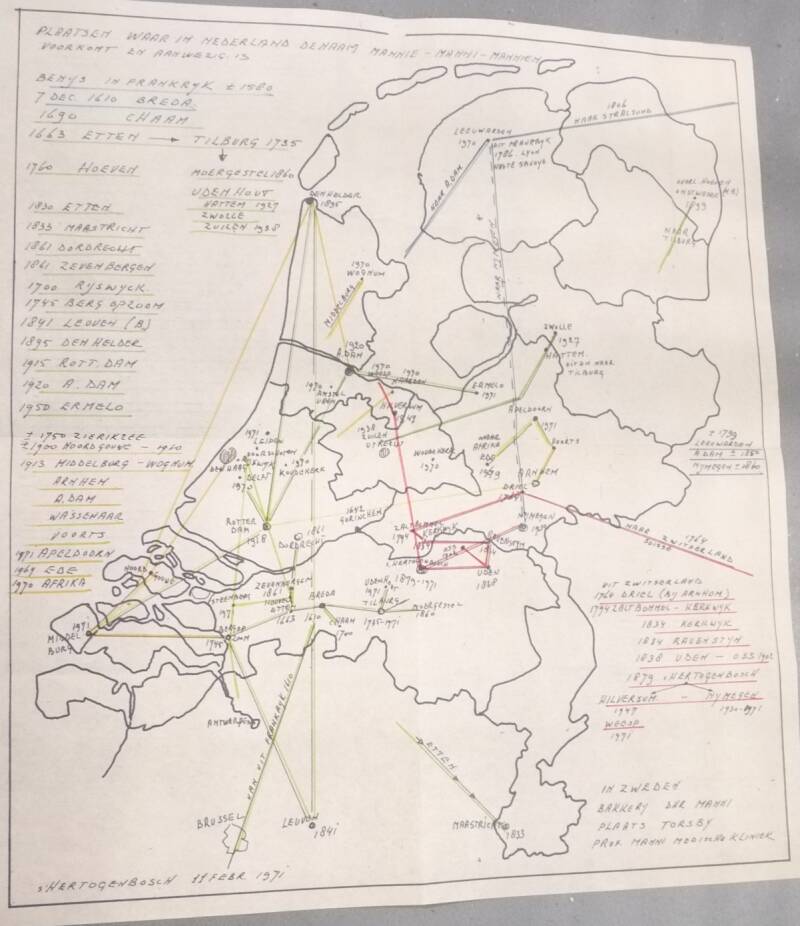 PLAATSEN WAAR IN NEDERLAND DE NAAM MANNIE - MANNI - MANNIEN
VOORKOMT EN AANWEZIG IS
BENYS IN FRANKRYK ± 1580
7 DEC. 1610 BREDA
1690 CHAAM
1663 ETTEN → TILBURG 1735
1760 HOEVEN
MOERGESTEL 1860
UDENHOUT
HATTEM 1927
ZWOLLE
ZUILEN 1938
1830 ETTEN
1833 MAASTRICHT
1861 DORDRECHT
1861 ZEVENBERGEN
1700 RYSWYCK
1745 BERG OP ZOOM
1841 LEUVEN (B)
1895 DEN HELDER
1915 ROTT. DAM
1920 A. DAM
1950 ERMELO
± 1750 ZIERIKZEE
± 1900 NOORDGOUWE - 1960
1913 MIDDELBURG - WOGNUM
ARNHEM
A.DAM
WASSENAAR
VOORTS
1971 APELDOORN
1969 EDE
1970 AFRIKA
1806
NAAR STRALSUND
LEEUWARDEN
1970
UIT FRANKRYK
1786. LYON
HAUTE SAVOYE
NAAR A.DAM
NAAR NYMEGEN
1899
NAAR
TILBURG
DEN HELDER
1895
1970
WOGNUM
MIDDELBURG
1920
A.DAM
1970
WEESP
1970
NAARDEN
ERMELO
1971
ZWOLLE
1927
HATTEM
UIT EN NAAR
TILBURG
1970
AMSTEL
VEEN
HILVERSUM
1947
1938
ZUILEN
UTRECHT
WOUDENBERG
1970
APELDOORN
1971
VOORTS
NAAR
AFRIKA
EDE
1969
ARNHEM
DRIEL
1760
1971
LEIDEN
VOORSCHOTEN
DEN HAAG
RYSWYK
DELFT
1970
1970
KOUDEKERK
ROTTER
DAM
1968
1861
DORDRECHT
1642
GORINCHEM
ZALTBOMMEL
1794
KERKWYK
1834
S.HERTOGENBOSCH
OSS
1902
RAVENSTYN
1834
UDEN
1838
NYMEGEN
1930
1764
NAAR
ZWITSERLAND
SUISSE
± 1799
LEEUWARDEN
A.DAM ± 1850
NYMEGEN ± 1860
NOORD
GOUWE
STEENBERG
1971
ZEVENBERGEN
1861
HOEVEN
ETTEN
1663
BREDA
1610
CHAAM
1700
UDENHOUT
1971
1879-1971
TILBURG
1735-1971
MOERGESTEL
1860
1971
MIDDEL
BURG
BERGOP
ZOOM
1745
ANTWERPEN
VAN UIT FRANKRYK 1610
BRUSSEL
LEUVEN
1841
ETTEN
MAASTRICHT
1833
UIT ZWITSERLAND
1760 DRIEL (BY ARNHEM)
1794 ZALTBOMMEL - KERKWYK
1834 KERKWYK
1834 RAVENSTYN
1838 UDEN - OSS 1902
1879 s HERTOGENBOSCH
HILVERSUM - NYMEGEN
1947 1930-1971
WEESP
1971
IN ZWEDEN
BAKKERY DHR MANNI
PLAATS TORSBY
PROF. MANNI MEDISCHE KLINIEK
s'HERTOGENBOSCH 11 FEBR 1971